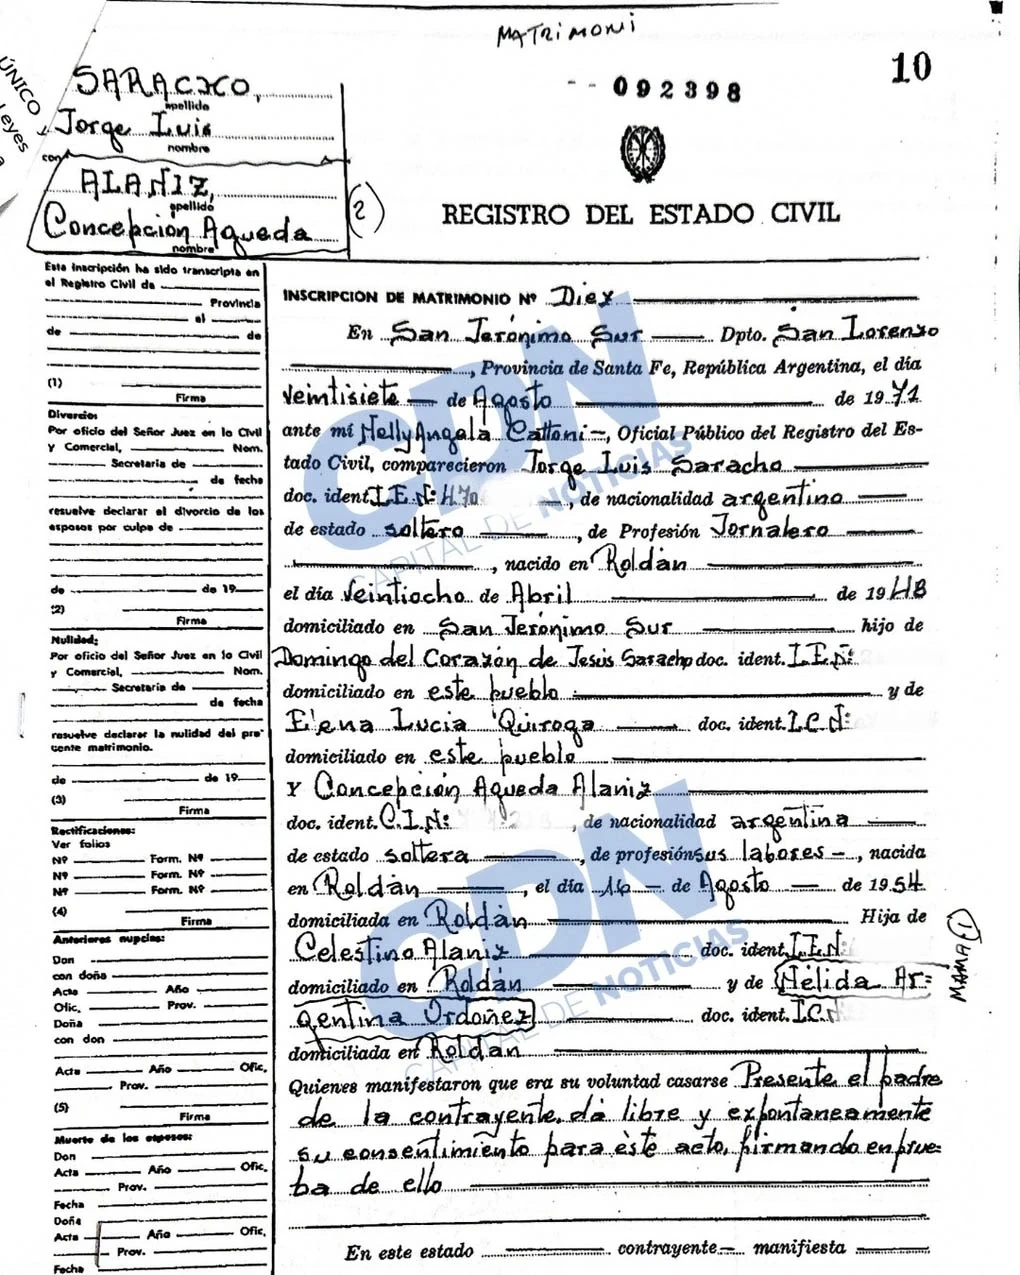 MATRIMONI
10
092398
ÚNICO y
Leyes
SARACHO,
apellido
Jorge Luis
nombre
con
ALANIZ,
apellido
Concepción Agueda
nombre
(2)
REGISTRO DEL ESTADO CIVIL
Esta inscripción ha sido transcripta en
el Registro Civil de
Provincia
el
de de
(1)
Firma
Divorcio:
Por oficio del Señor Juez en lo Civil
y Comercial, Nom.
Secretaría de
de fecha
resuelve declarar el divorcio de los
esposos por culpa de
de de 19
(2)
Firma
Nulidad:
Por oficio del Señor Juez en lo Civil
y Comercial, Nom.
Secretaría de
de fecha
resuelve declarar la nulidad del pre-
sente matrimonio.
de de 19
(3)
Firma
Rectificaciones:
Ver folios
Nº Form. Nº
Nº Form. Nº
Nº Form. Nº
(4)
Firma
Anteriores nupcias:
Don
con doña
Acta Año
Ofic. Prov.
Doña
con don
Acta Año Ofic.
Prov.
(5)
Firma
Muerte de los esposos:
Don
Acta Año Ofic.
Prov.
Fecha
Doña
Acta Año Ofic.
Prov.
Fecha
INSCRIPCION DE MATRIMONIO Nº Diez
En San Jerónimo Sur Dpto. San Lorenzo
, Provincia de Santa Fe, República Argentina, el día
Veintisiete de Agosto de 1971
ante mí Nelly Angela Cattoni, Oficial Público del Registro del Es-
tado Civil, comparecieron Jorge Luis Saracho
doc. ident. I.E.N: 470 , de nacionalidad argentino
de estado soltero , de Profesión Jornalero
, nacido en Roldán
el día Veintiocho de Abril de 1948
domiciliado en San Jerónimo Sur hijo de
Domingo del Corazón de Jesús Saracho doc. ident. I.E.N:
domiciliado en este pueblo y de
Elena Lucia Quiroga doc. ident. I.C.N:
domiciliado en este pueblo
y Concepción Agueda Alaniz
doc. ident. C.I.N: , de nacionalidad argentina
de estado soltera , de profesión sus labores , nacida
en Roldán , el día 16 de Agosto de 1954
domiciliada en Roldán Hija de
Celestino Alaniz doc. ident. I.E.N:
domiciliado en Roldán y de Nélida Ar=
gentina Ordoñez doc. ident. I.C.N
domiciliada en Roldan
MAMA (1)
Quienes manifestaron que era su voluntad casarse Presente el padre
de la contrayente, dá libre y expontaneamente
su consentimiento para èste acto, firmando en prue=
ba de ello
En este estado contrayente manifiesta
CDN
CAPITAL DE NOTICIAS
CDN
CAPITAL DE NOTICIAS